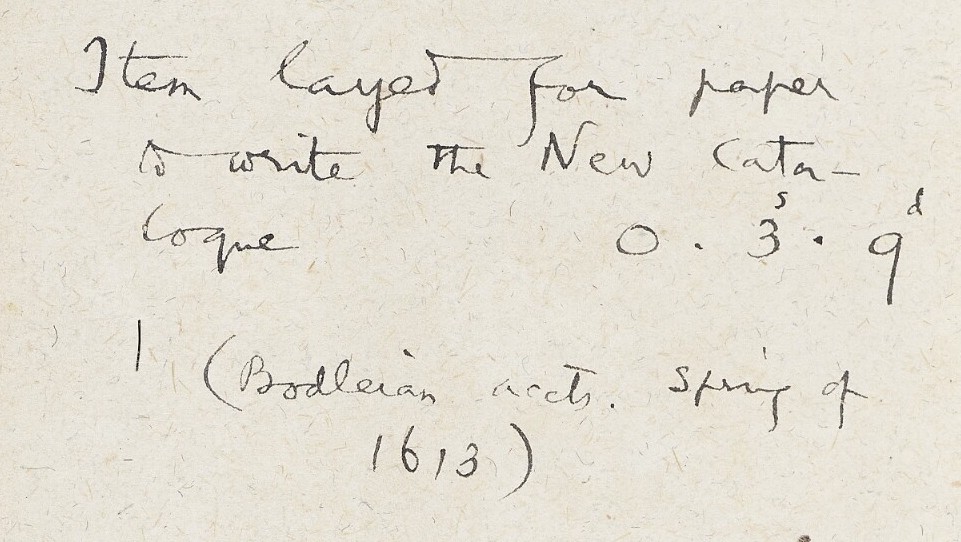 Item layed for paper
to write the New Cata-
logue 0 . 3s . 9d
| (Bodleian accts. Spring of
1613)